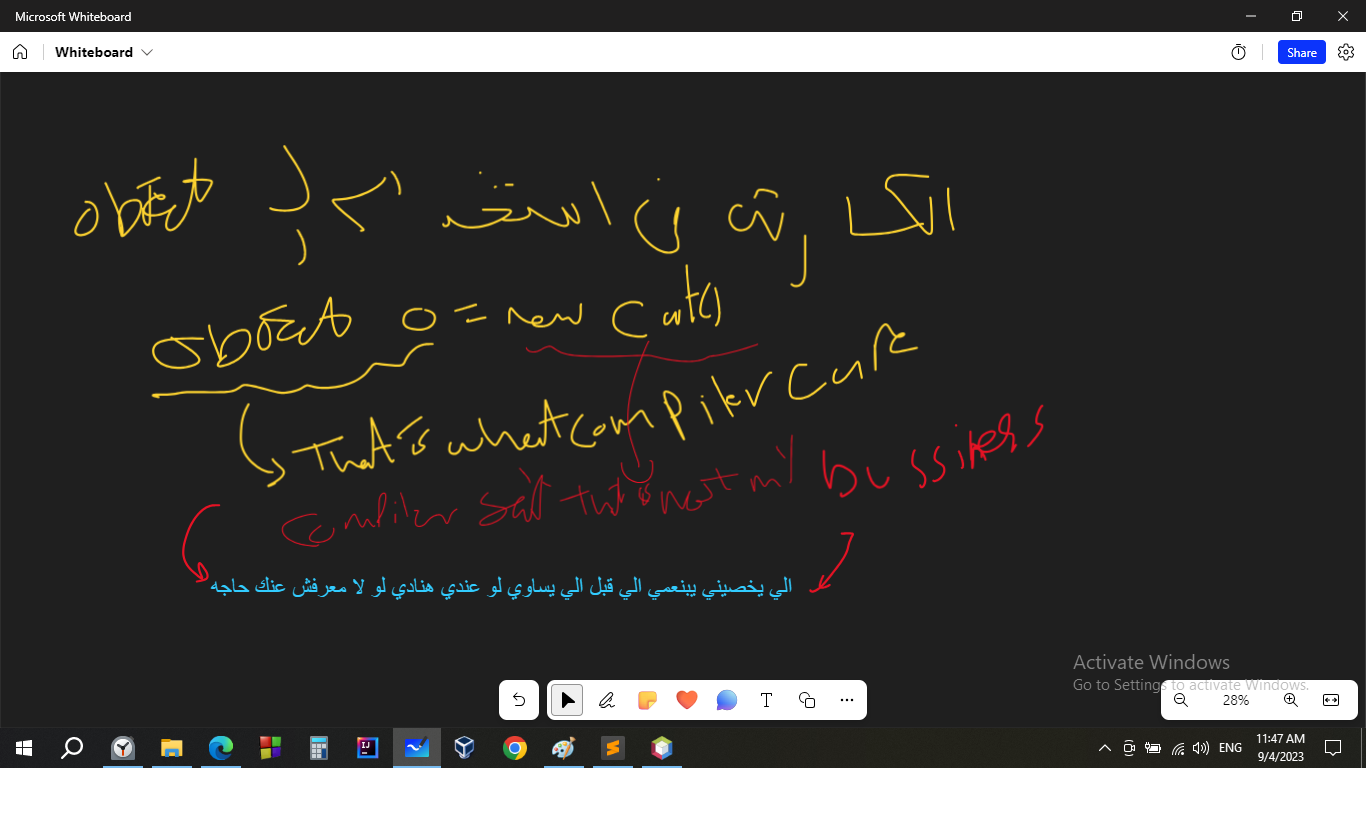 Microsoft Whiteboard
Whiteboard
Share
object
object o = new Cart()
That is what compiler care
compiler said that is not my bussiness
الي يخصيني يبنعمي الي قبل الي يساوي لو عندي هنادي لو لا معرفش عنك حاجه
Activate Windows
Go to Settings to activate Windows.
28%
ENG
11:47 AM
9/4/2023